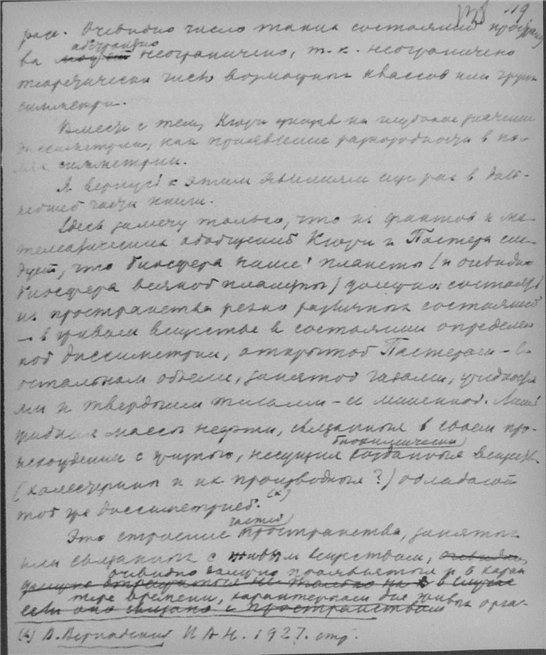 19
расс. Очевидно число таких состояний простран
ва абстрактно неограничено, т.к. неограничено
теоретически число возможных классов или групп
симметрии.
Вместе с тем, Кюри указал на глубокое значение
диссимметрии, как проявление разнородности в
симметрии.
Я вернусь к этим явлениям еще раз в даль-
нейшей части книги.
Здесь замечу только, что из фактов и ма-
тематических обобщений Кюри и Пастера сле-
дует, что биосфера нашей планеты (и очевидно
биосфера всякой планеты) должна состоять
из пространства резко различных состояний
- в живом веществе в состоянии определен
ной диссимметрии, открытой Пастером - в
остальном объеме, занятом газами, жидкостя
ми и твердыми телами - ее лишенной.
жидкие массы нефти, связанные в своем про-
исхождении с жизнью, несущия биохимически
созданныя вещества
(холестерины и их производныя?) обладают
той же диссимметрией. (*)
Это строение частей пространства, занятых
или связанных с живым веществом,
очевидно должно проявляться и в харак
тере времени, характерном для живых орга-
(*) В. Вернадский И А Н. 1927. стр.